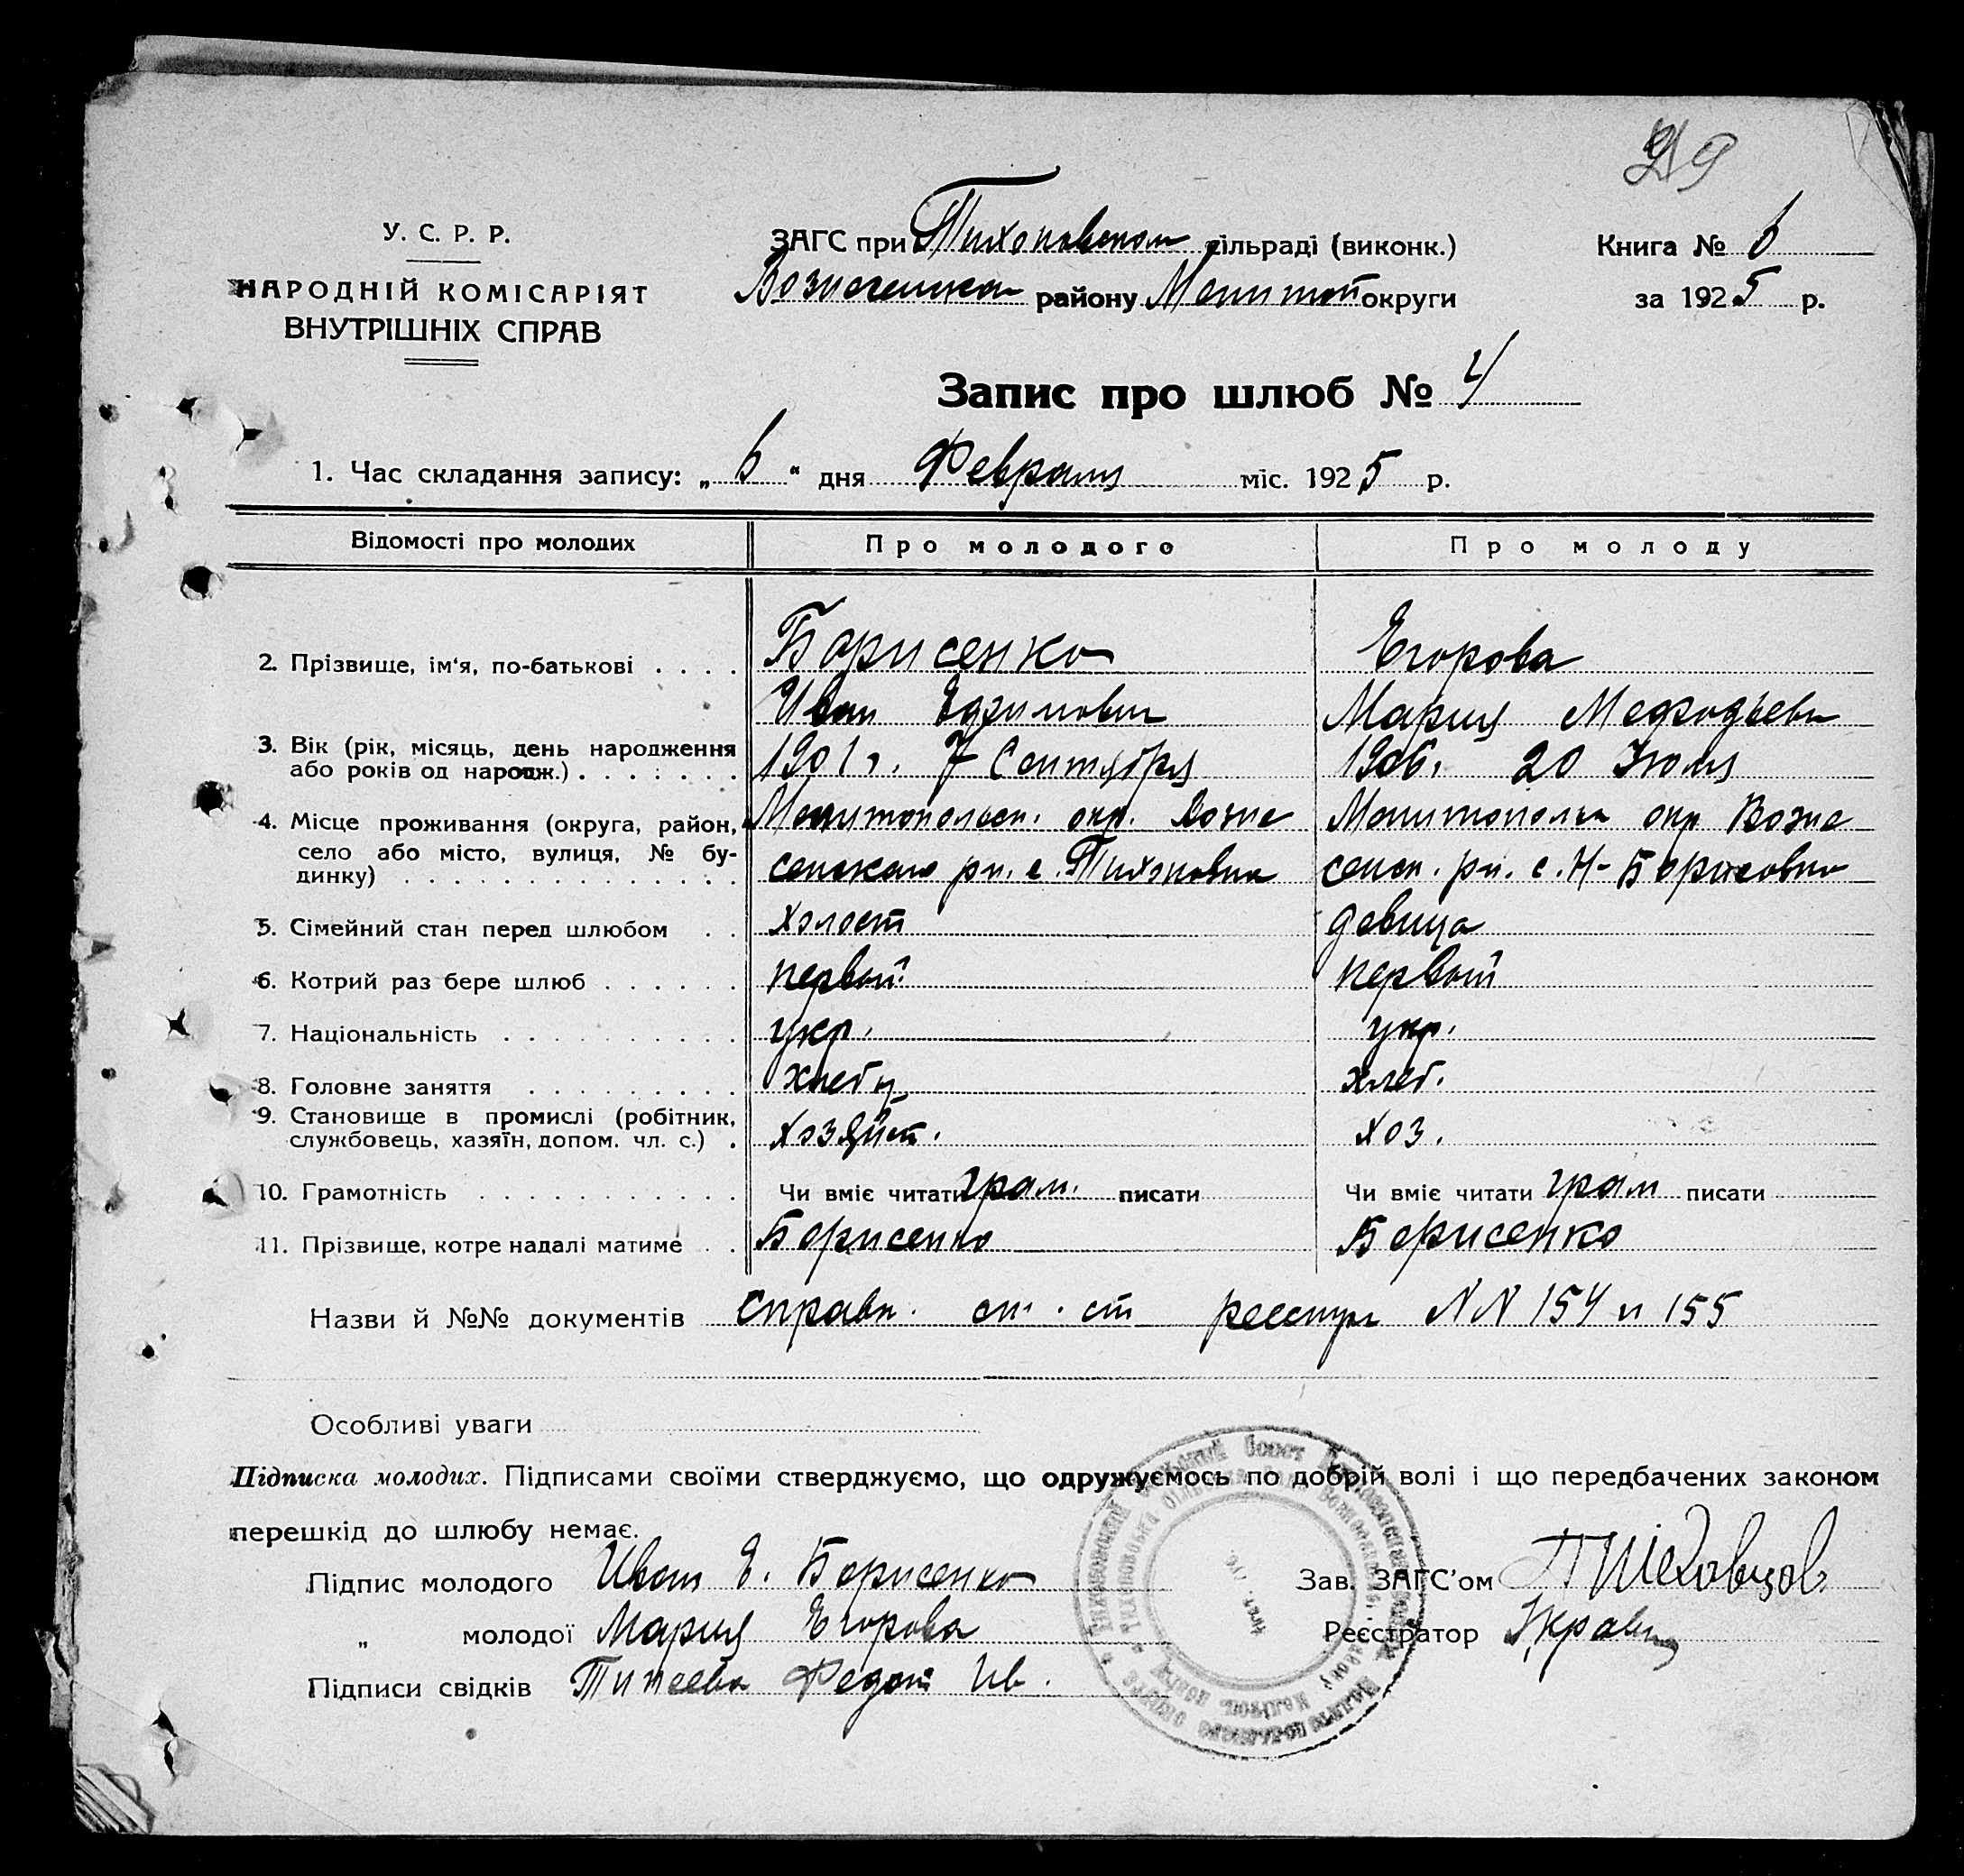 29
У. С. Р. Р.
НАРОДНІЙ КОМІСАРІЯТ
ВНУТРІШНІХ СПРАВ
ЗАГС при Тихоновском сільраді (виконк.)
району Мелитоп округи
Книга № 6
за 1925 р.
Запис про шлюб № 4
1. Час складання запису: „ 6 “ дня Февраля міс. 1925 р.
Відомості про молодих Про молодого Про молоду
2. Прізвище, ім‘я, по-батькові . . . . Борисенко Егорова
Иван Ефимович Мария Мефодьевн
3. Вік (рік, місяць, день народження
або років од народж.) . . . . . . . 1901 г. 7 Сентября 1906. 20 Июля
4. Місце проживання (округа, район, Мелитопольск. окр. Возне Мелитопольск окр Возне
село або місто, вулиця, № бу-
динку) . . . . . . . . . . . . . . сенского рн. с. Тихоновка сенск. рн. с. Н-Борисовка
5. Сімейний стан перед шлюбом . . холост девица
6. Котрий раз бере шлюб . . . . . . первый первый
7. Національність . . . . . . . . . . укр. укр.
8. Головне заняття . . . . . . . . . хлеб.
9. Становище в промислі (робітник,
службовець, хазяїн, допом. чл. с.) . хоз.
10. Грамотність . . . . . . . . . . . . Чи вміє читати грам. писати Чи вміє читати грам писати
11. Прізвище, котре надалі матиме . . Борисенко Борисенко
Назви й №№ документів справк. реестр NN 154 и 155
Особливі уваги
Підписка молодих. Підписами своїми стверджуємо, що одружуємось по добрій волі і що передбачених законом
перешкід до шлюбу немає.
Підпис молодого Иван Е. Борисенко
„ молодої Мария Егорова
Підписи свідків Федот Ив.
Зав. ЗАГС’ом П Шеховцов
Реєстратор